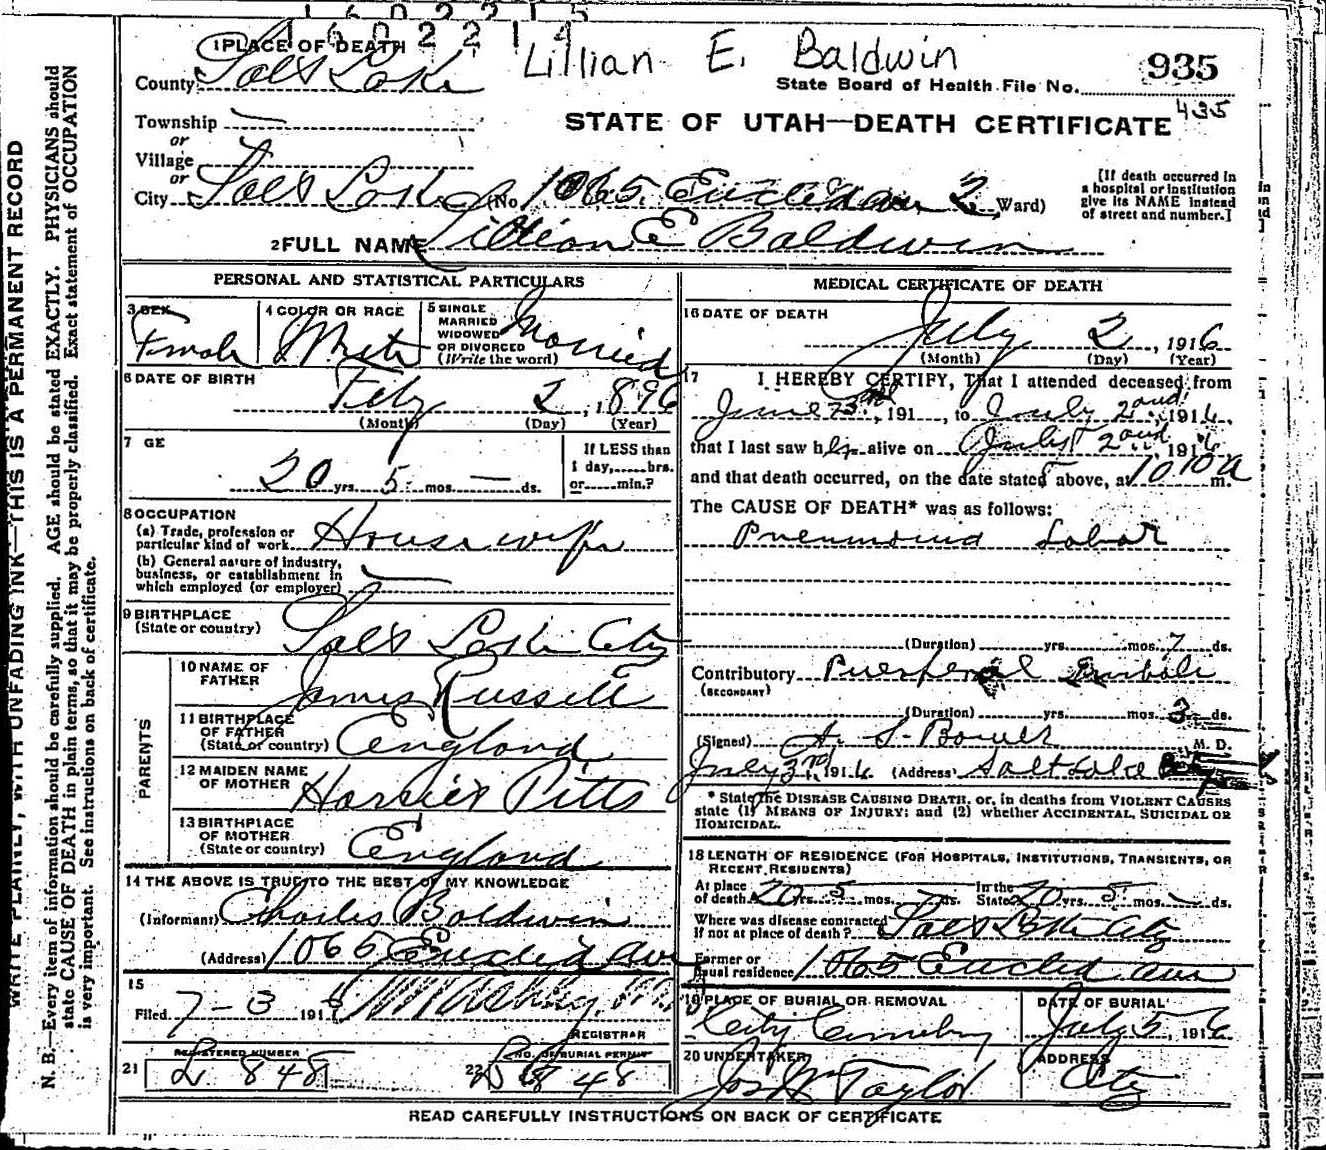 1602214
Lillian E. Baldwin
935
435
1 PLACE OF DEATH
County Salt Lake
State Board of Health File No.
STATE OF UTAH—DEATH CERTIFICATE
Township
or
Village
or
City Salt Lake (No. 1065 Euclid ave, 2 Ward)
[If death occurred in
a hospital or institution
give its NAME instead
of street and number.]
2 FULL NAME Lillian E Baldwin
PERSONAL AND STATISTICAL PARTICULARS
3 SEX Female
4 COLOR OR RACE White
5 SINGLE
MARRIED
WIDOWED
OR DIVORCED
(Write the word) Married
6 DATE OF BIRTH Feby 2, 1896
(Month) (Day) (Year)
7 GE
20 yrs. 5 mos. — ds.
If LESS than
1 day,......hrs.
or......min.?
8 OCCUPATION
(a) Trade, profession or
particular kind of work. Housewife
(b) General nature of industry,
business, or establishment in
which employed (or employer)
9 BIRTHPLACE
(State or country) Salt Lake City
PARENTS
10 NAME OF
FATHER James Russell
11 BIRTHPLACE
OF FATHER
(State or country) England
12 MAIDEN NAME
OF MOTHER Harriet Pitts
13 BIRTHPLACE
OF MOTHER
(State or country) England
14 THE ABOVE IS TRUE TO THE BEST OF MY KNOWLEDGE
(Informant) Charles Baldwin
(Address) 1065 Euclid ave
15
Filed 7-3 1916
REGISTRAR
REGISTERED NUMBER
21 L 848
NO. OF BURIAL PERMIT
22 848
MEDICAL CERTIFICATE OF DEATH
16 DATE OF DEATH July 2, 1916
(Month) (Day) (Year)
17 I HEREBY CERTIFY, That I attended deceased from
June , 191 , to July 2nd, 1916,
that I last saw her alive on July 2nd, 1916
and that death occurred, on the date stated above, at 10 10 a m.
The CAUSE OF DEATH* was as follows:
Pneumonia Lobar
(Duration) yrs. mos. 7 ds.
Contributory Puerperal Emboli
(SECONDARY)
(Duration) yrs. mos. 3 ds.
(Signed) A. S. Bower M. D.
July 3rd, 1916 (Address) Salt Lake
* State the DISEASE CAUSING DEATH, or, in deaths from VIOLENT CAUSES
state (1) MEANS OF INJURY; and (2) whether ACCIDENTAL, SUICIDAL OR
HOMICIDAL.
18 LENGTH OF RESIDENCE (FOR HOSPITALS, INSTITUTIONS, TRANSIENTS, OR
RECENT RESIDENTS)
At place
of death 20 yrs. 5 mos. ds. In the
State 20 yrs. 5 mos. — ds.
Where was disease contracted
If not at place of death? Salt Lake City
Former or
usual residence 1065 Euclid ave
19 PLACE OF BURIAL OR REMOVAL
City Cemetery
DATE OF BURIAL
July 5, 1916
20 UNDERTAKER
Jos Wm Taylor
ADDRESS
City
READ CAREFULLY INSTRUCTIONS ON BACK OF CERTIFICATE
WRITE PLAINLY, WITH UNFADING INK—THIS IS A PERMANENT RECORD
N. B.—Every item of information should be carefully supplied. AGE should be stated EXACTLY. PHYSICIANS should
state CAUSE OF DEATH in plain terms, so that it may be properly classified. Exact statement of OCCUPATION
is very important. See instructions on back of certificate.